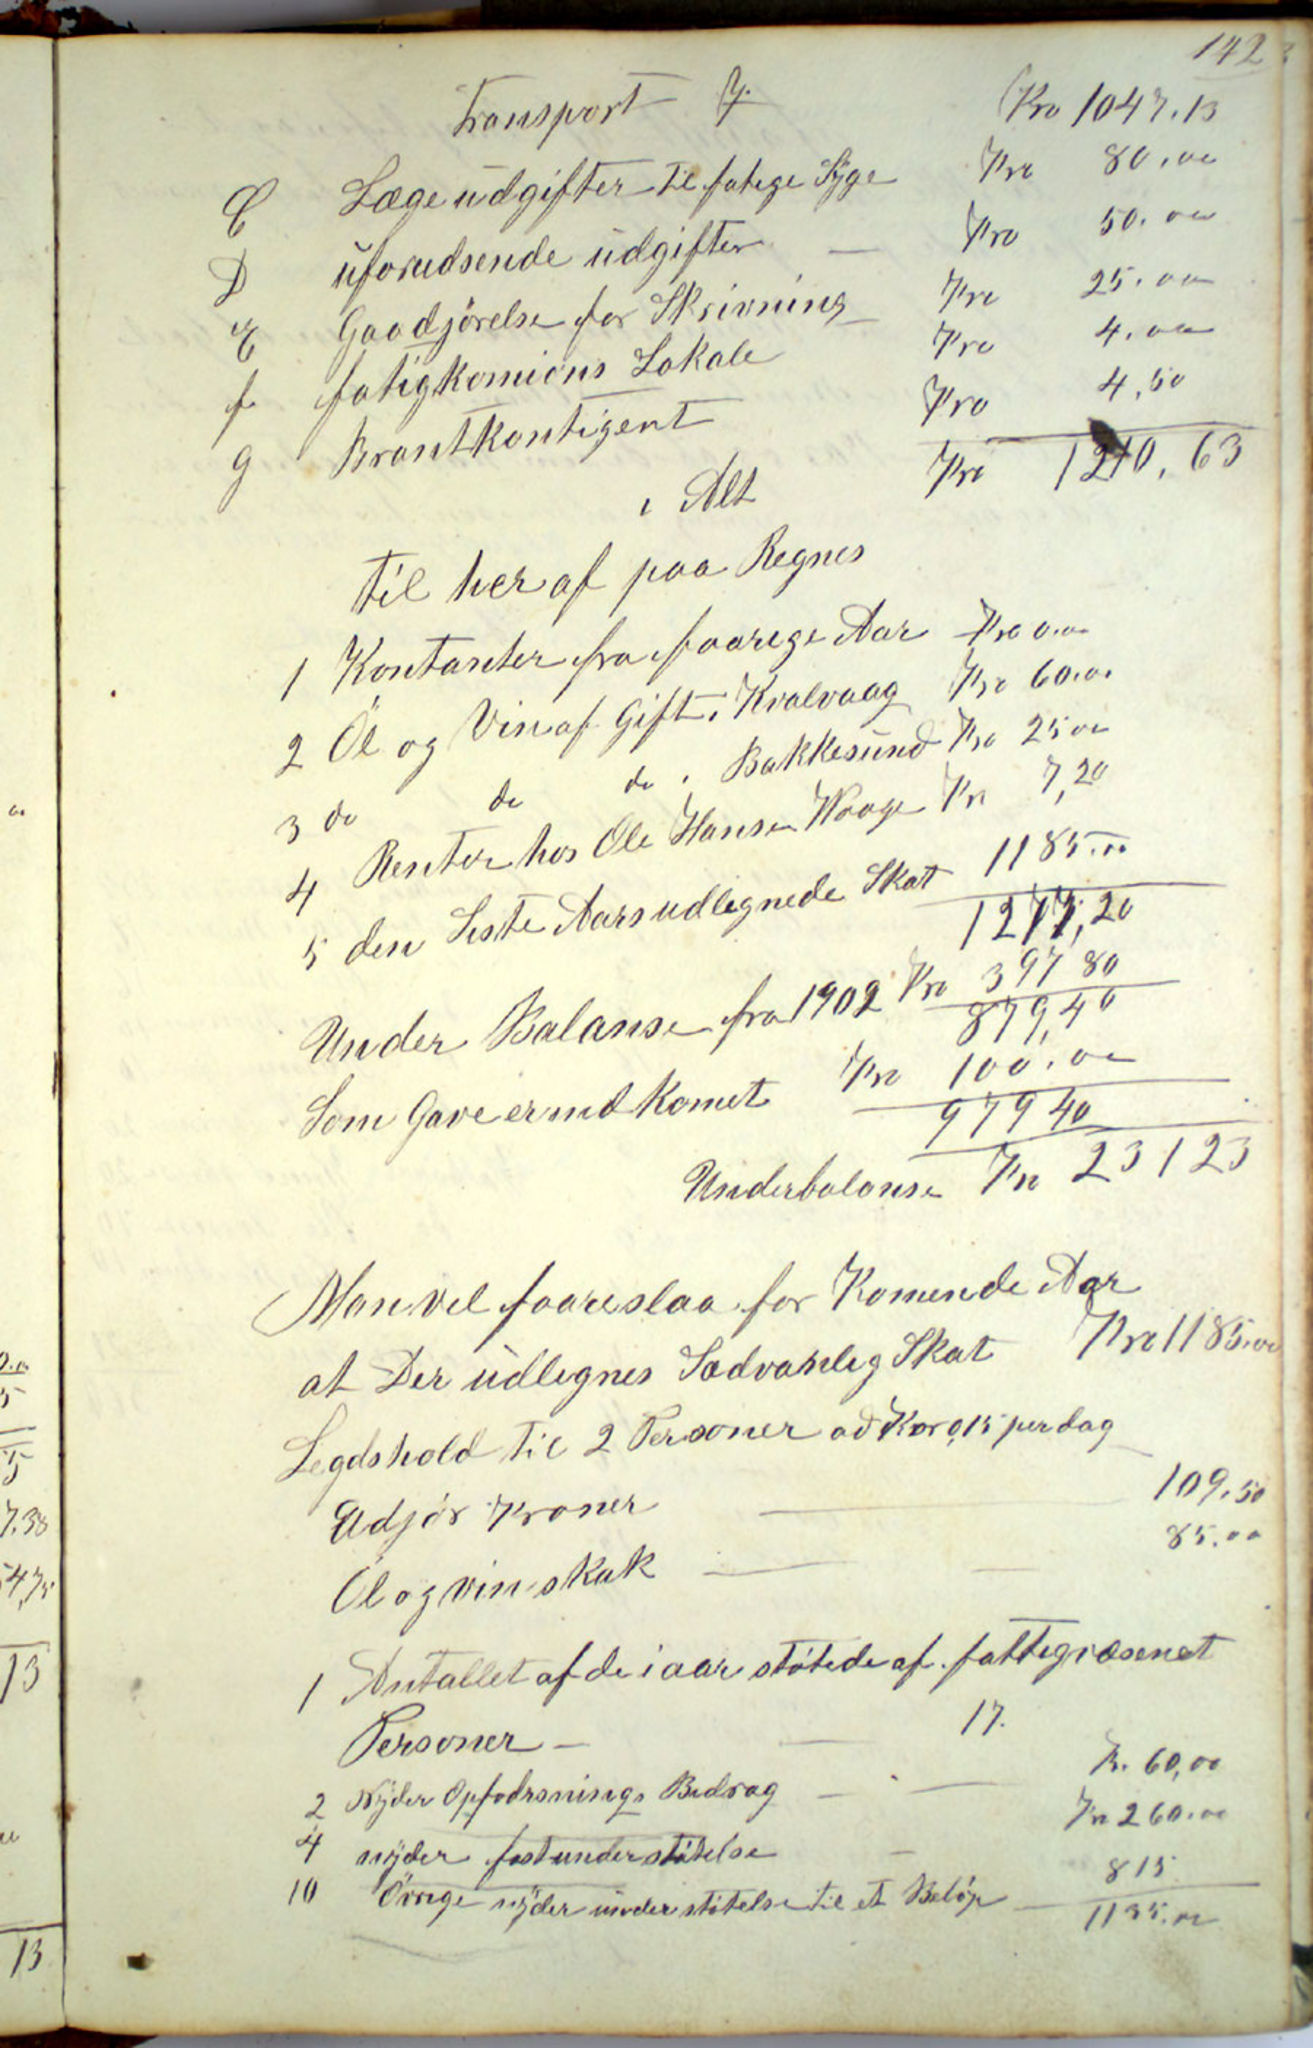 142
Transport Kro 1047.13
C Lægeudgifter til fatige Syge Kro 80.00
D uforudsende udgifter — Kro 50.00
E Gaadjörelse for Skrivning Kro 25.00
f. fatigkomions Lokale Kro 4.00
g Brantkontigent Kro 4,50
i Alt Kro 1210,63
til her af paa Regnes
1 Kontanter fra faarige Aar Kro 0.00
2 Öl og Vin af Gift i Kvalvaag Kro 60.0.
3 do do do i Bakkesund Kro 25 00
4 Renter hos Ole Hansen Waage Kr 7,20
5 den Siste Aars udlegnede Skat 1185.00
1277,20
Under Balanse fra 1902 Kro 397 80
879,40
Som Gave er indkomet Kro 100.00
979 40
Underbalanse Kro 231 23
Man vil faareslaa for Komende Aar
at Der udlegnes Sædvanleg Skat Kro 1185.00
Legdshold til 2 Personer ad Kor 0,15 per dag
Udjör Kroner — 109.50
Öl og vin skak — — 85.00
1 Antallet af de i aar stötede af fattegvæsenet
Personer — — 17.
2 Nyder Opfodrsnings Bidrag — — Kr. 60,00
4 nyder fast understötelse — Kr 260.00
10 Övrige nyder understötelse til et Belöp — 815
1135.00
0.00
5
5
7.38
54,75
13
13